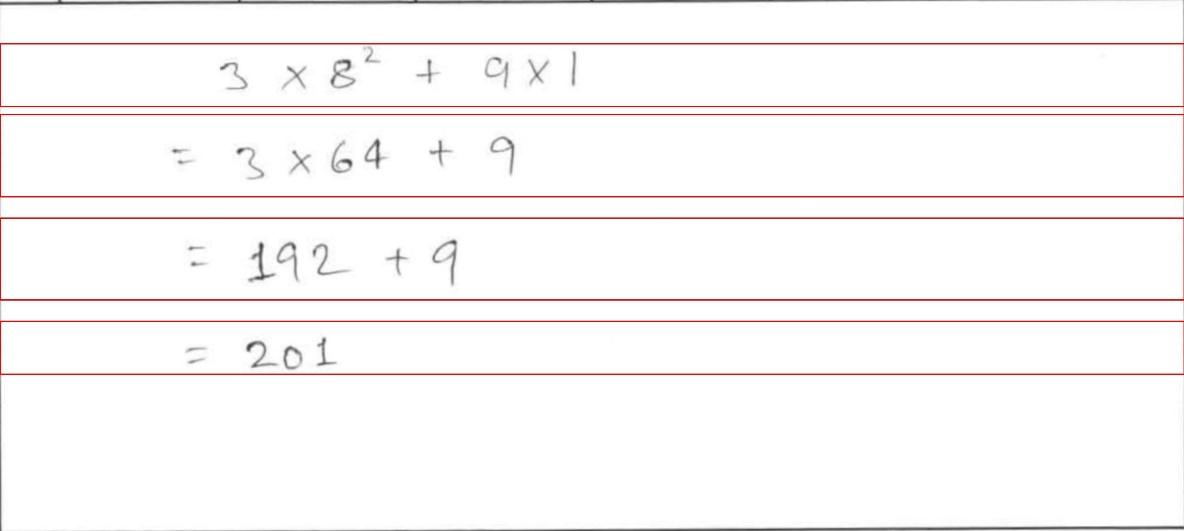 3 × 8² + 9 × 1
= 3 × 64 + 9
= 192 + 9
= 201